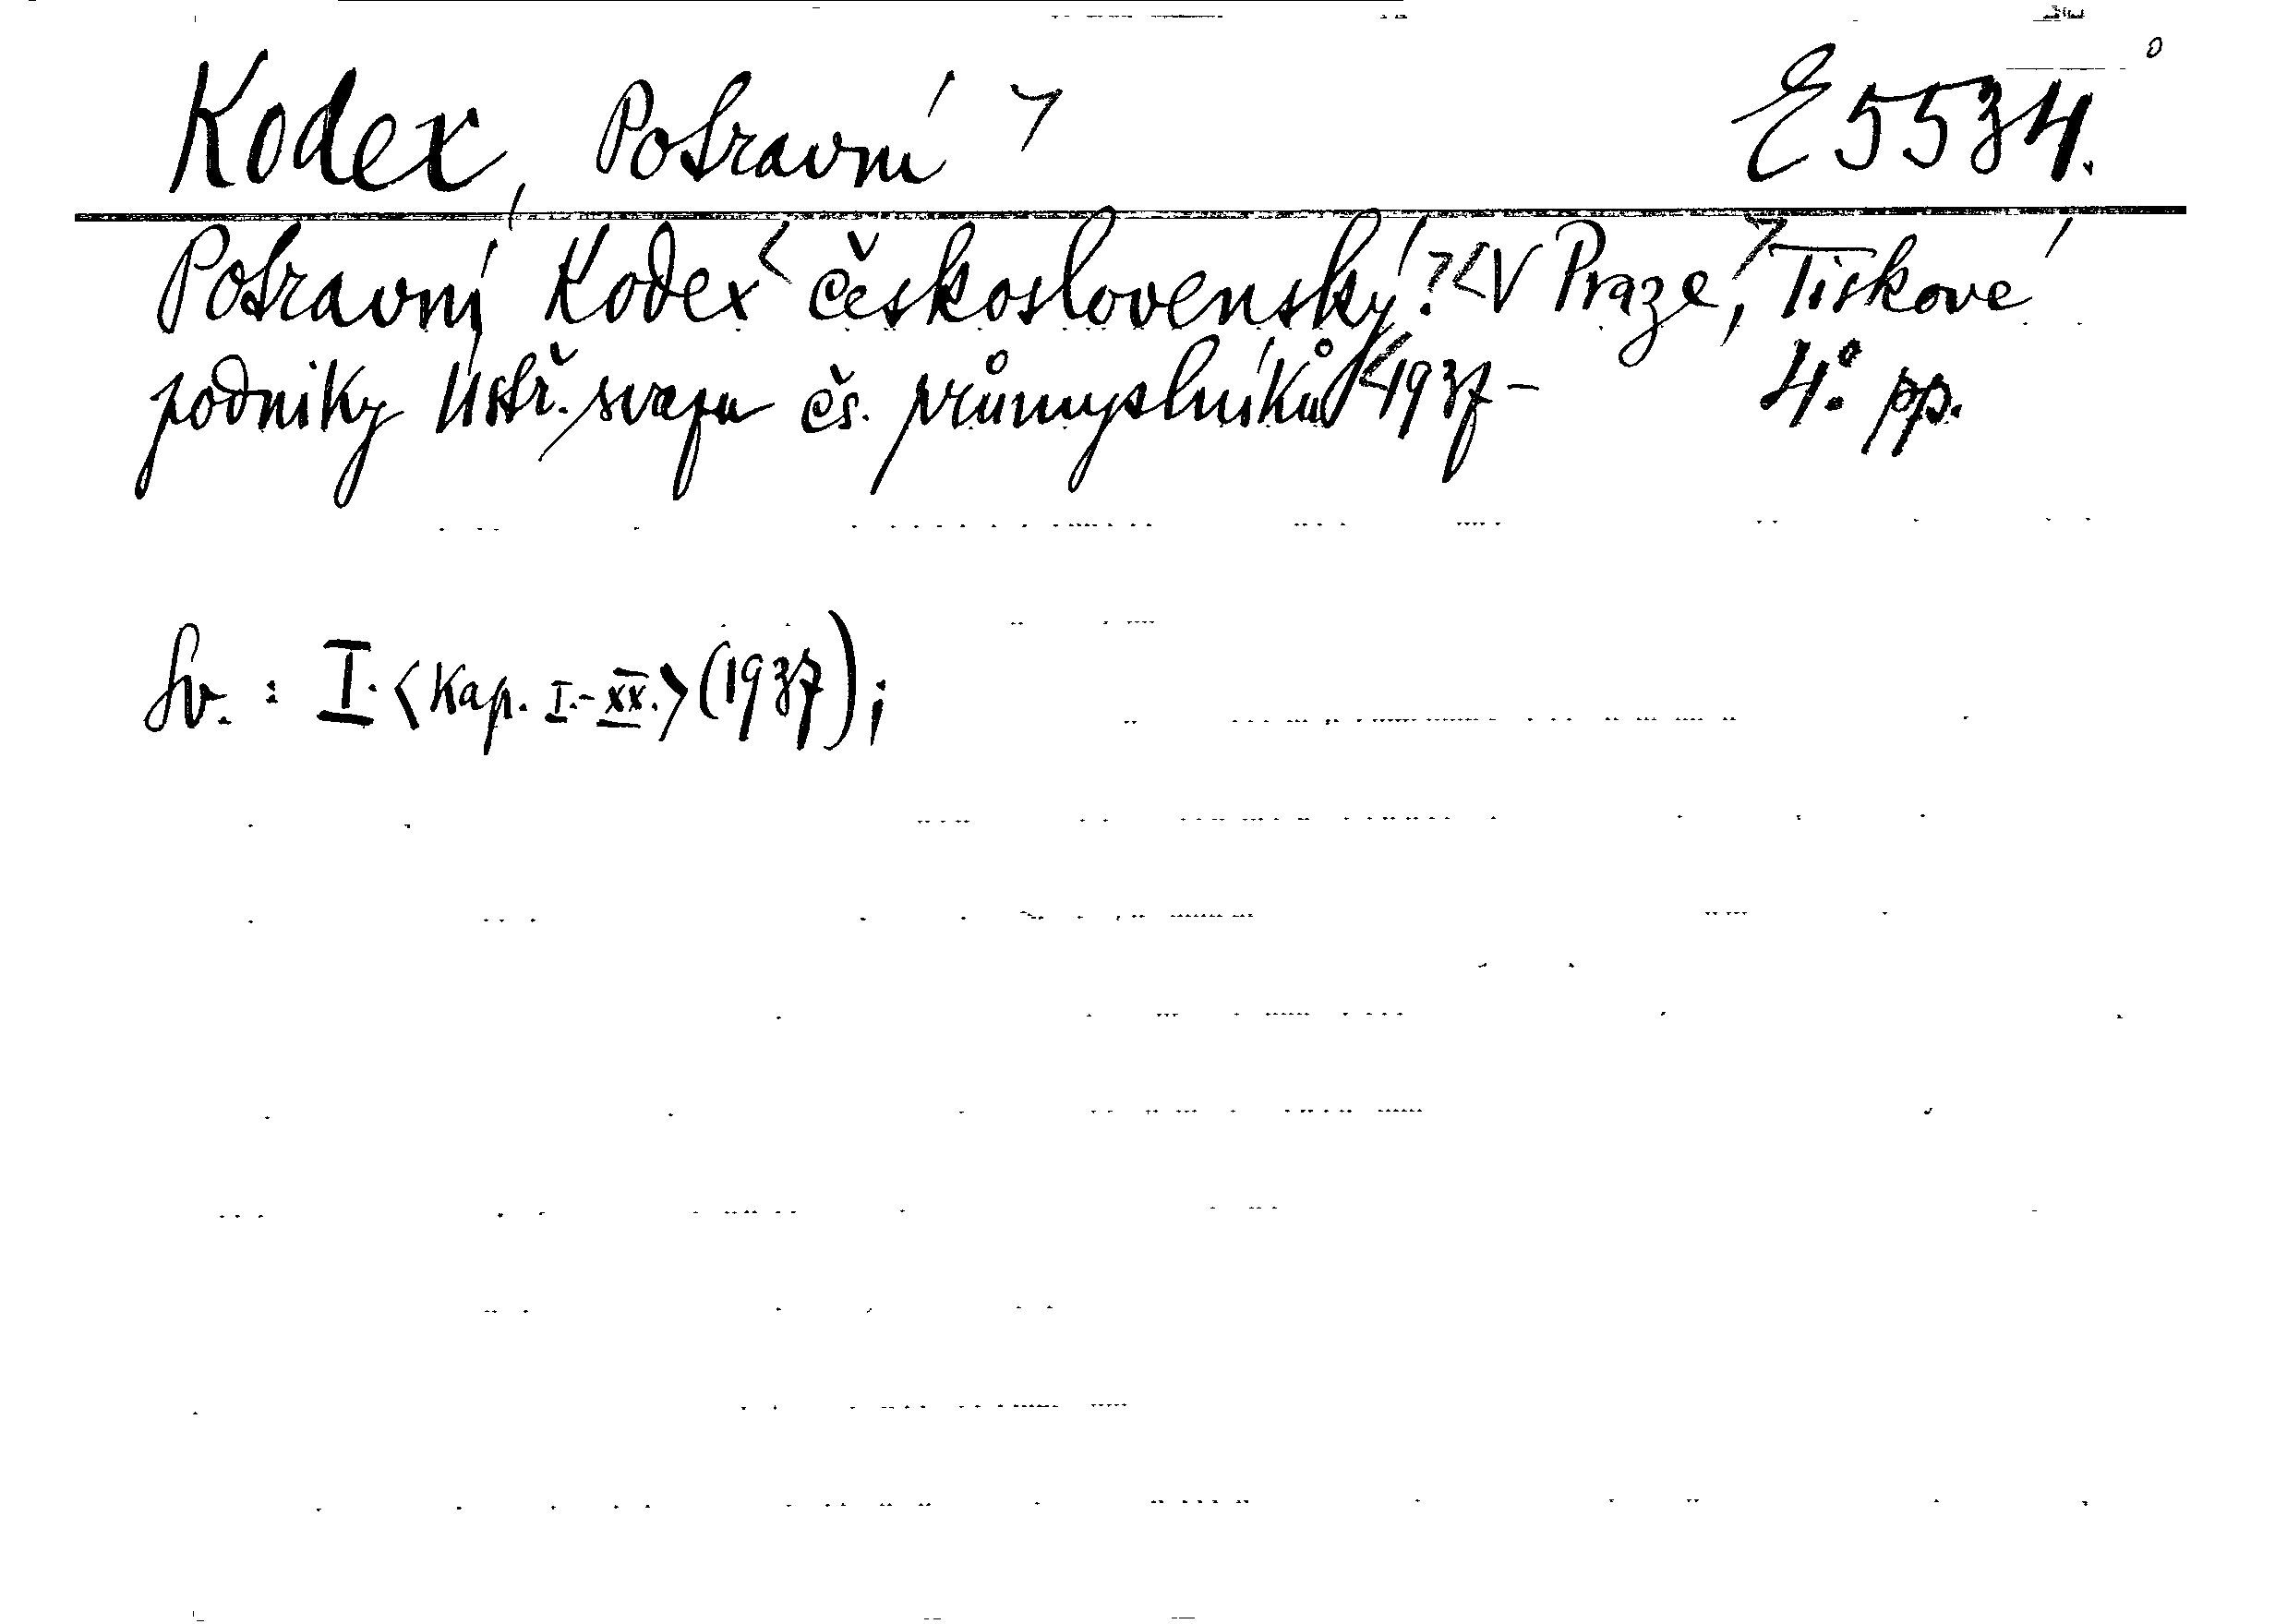 Kodex, Potravní E 5534.
Potravní Kodex československý. V Praze, Tiskové
podniky Ústř. svazu čs. průmyslníků 1937- 4° pp.
Sv.: I. <Kap. I.-XX.> (1937);